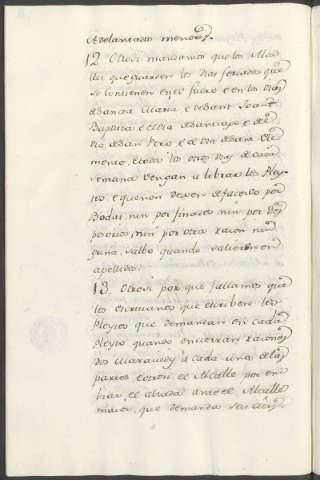 Adelantados menores.
12 Otrosi mandamos que los Alcal
des que guarden los dias feriados que
se contienen en el fuero e en los dias
de Sancta Maria e de Sant Joan
Baptista e el dia de Santiago e de
dia de San Pero e de
e todos los otros dias de cada
semana vengan a librar los Pley
tos e que non dexen de facerlo por
Bodas nin por finados nin por Des
posorios, nin por otra racon nin
guna, salbo quando salieren en
apellido.
13. Otrosi por que fallamos que
los escrivanos que escriben los
Pleytos que demandan en cada
Pleyto quando encierran racones
dos maravedis a cada una de las
partes e otrosi el Alcalle por em
biar el alzada ante el Alcalle
maior, que demanda seis